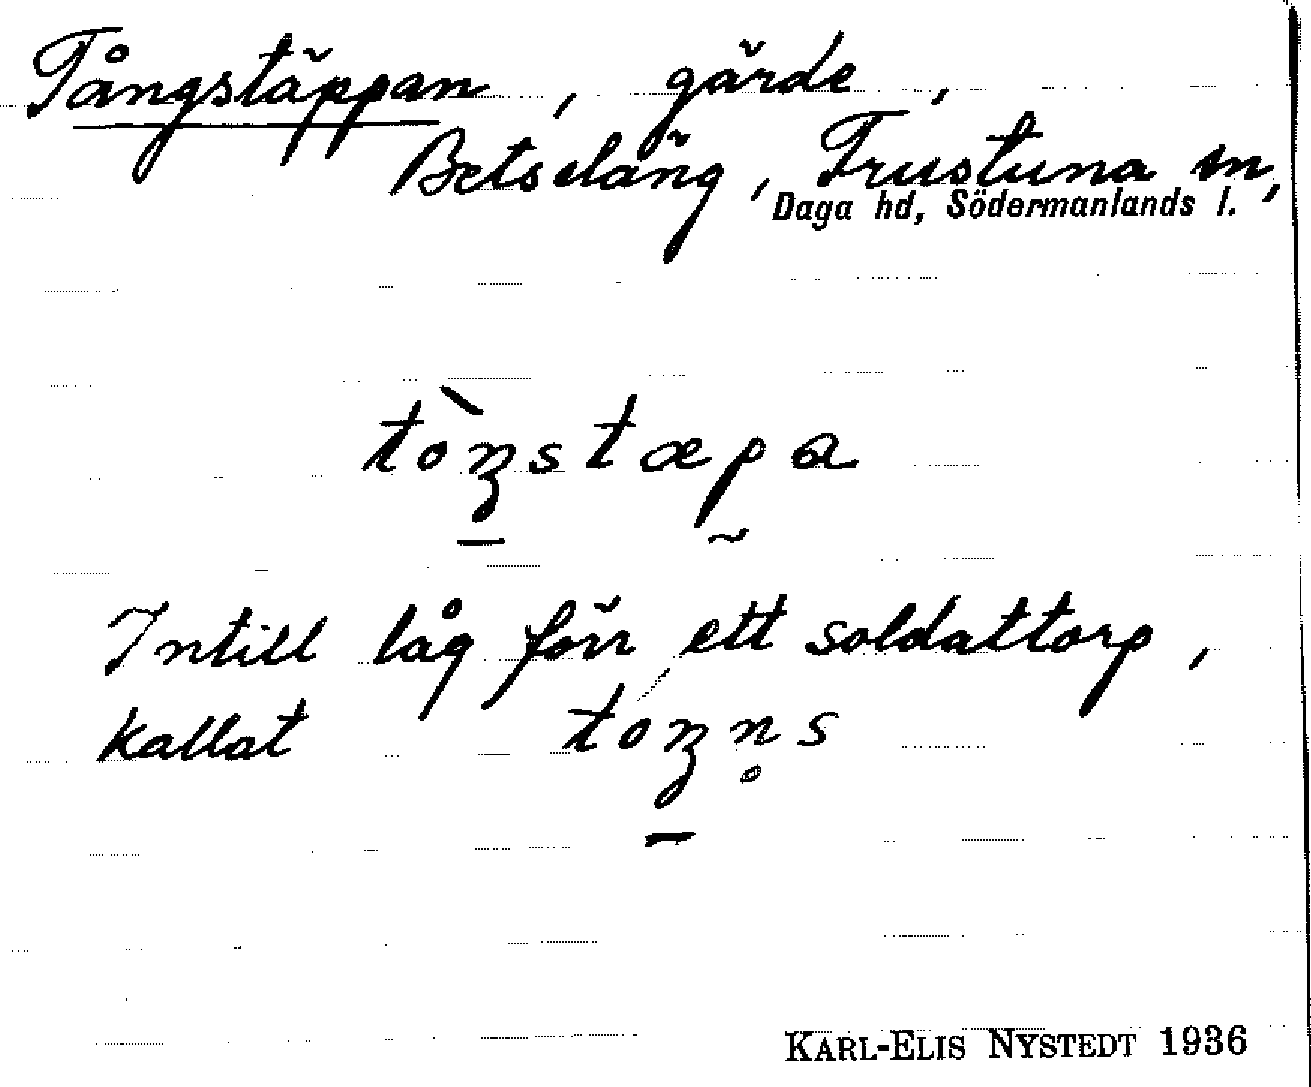 Tångstäppan, gärde,
Betseläng, Frustuna sn,
Daga hd, Södermanlands l.
tòŋstæpa
Intill låg förr ett soldattorp,
kallat tóŋn̥s
KARL-ELIS NYSTEDT 1936